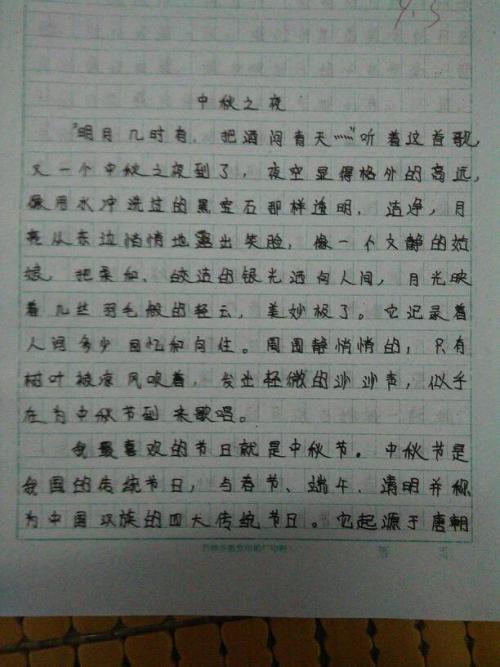 中秋之夜
"明月几时有，把酒问青天……"听着这首歌，
又一个中秋之夜到了，夜空显得格外的高远，
像用水冲洗过的黑宝石那样透明、洁净，月
亮从东边悄悄地露出笑脸，像一个文静的姑
娘，把柔和、皎洁的银光洒向人间，月光映
着几丝羽毛般的轻云，美妙极了。它记录着
人间多少回忆和向住。周围静悄悄的，只有
树叶被凉风吹着，发出轻微的沙沙声，似乎
在为中秋节到来歌唱。
我最喜欢的节日就是中秋节。中秋节是
我国的传统节日，与春节、端午、清明并称
为中国汉族的四大传统节日。它起源于唐朝
第 页